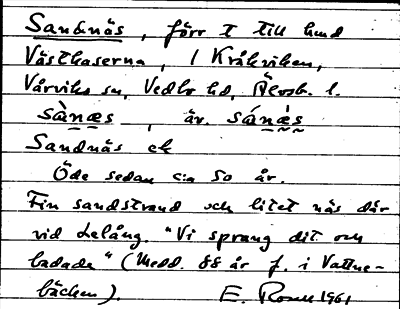 Sandnäs, förr t till hmd
Västkaserna, i Kråkviken,
Vårviks sn, Vedbo hd, Älvsb. l.
sànæs, äv. sánæ̀s
Sandnäs ck
Öde sedan c:a 50 år.
Fin sandstrand och litet näs där
vid Lelång. "Vi sprang dit och
badade" (Medd. 88 år f. i Vattne-
bäcken). E. Rosen 1961